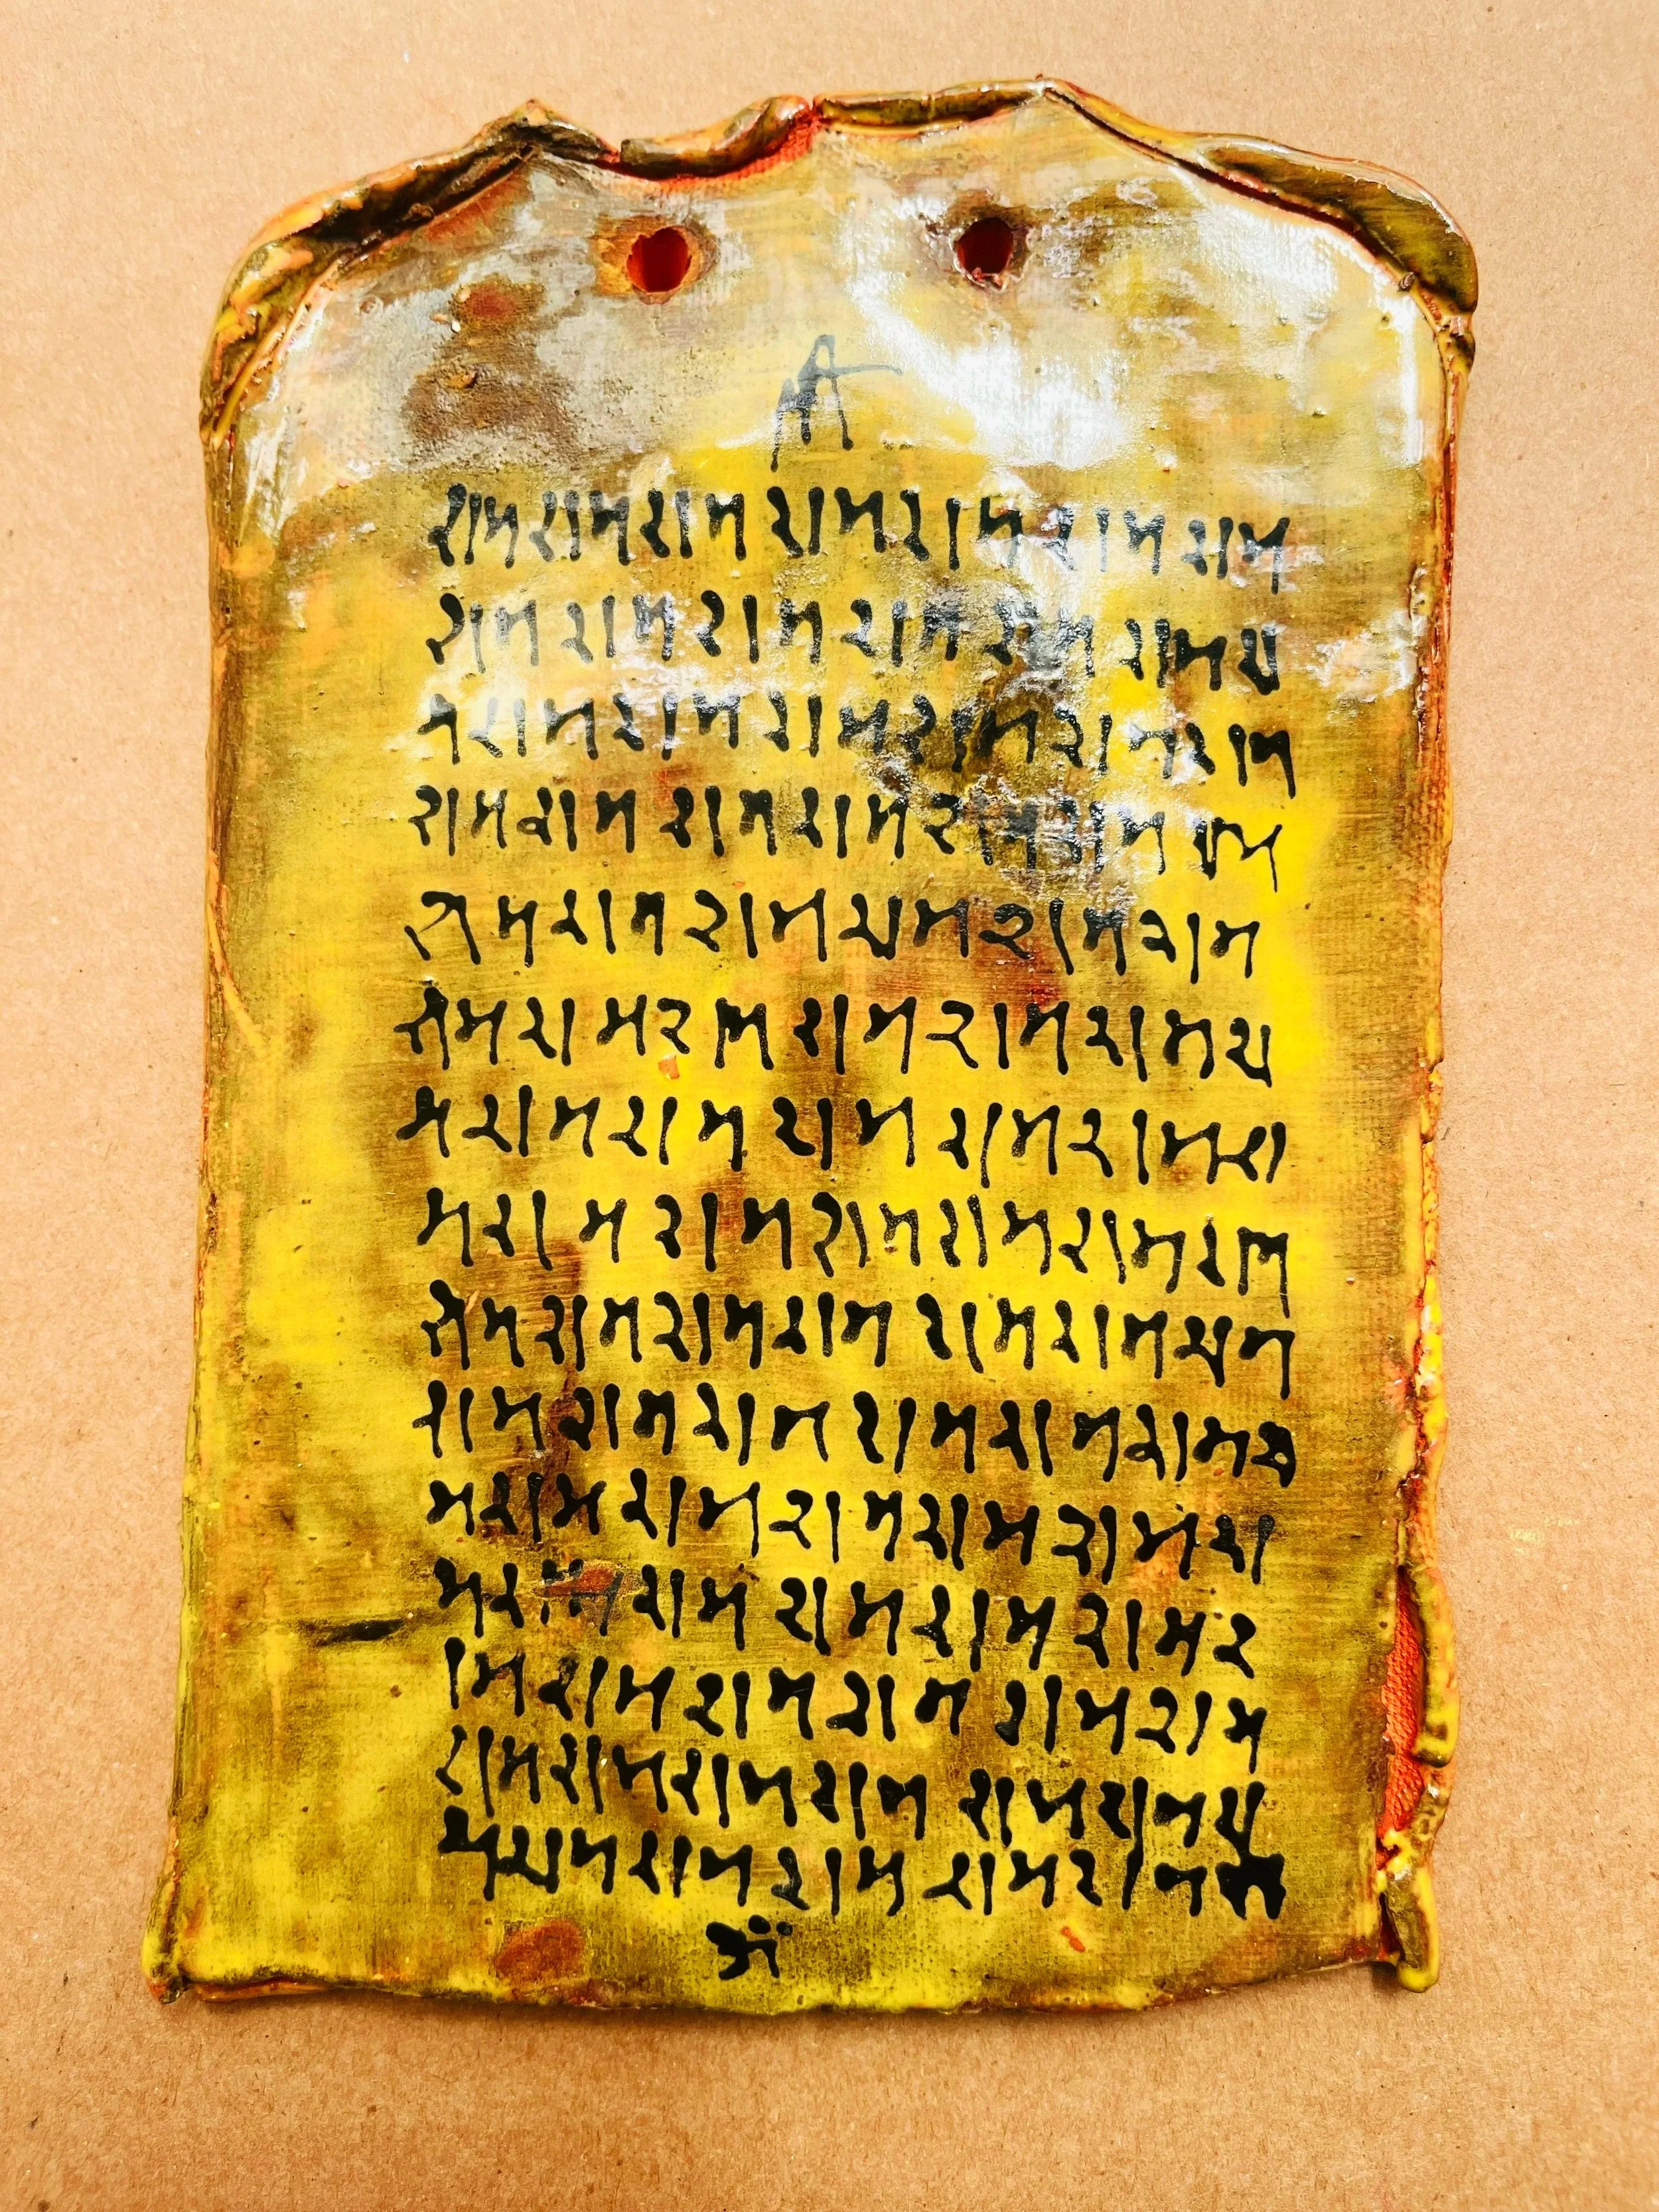 रामरामरामरामरामरामराम
रामरामरामरामरामरामरा
मरामरामरामरामरामराम
रामरामरामरामरामरामराम
रामरामरामरामरामराम
रामरामरामरामरामरामरा
मरामरामरामरामरामरा
मरामरामरामरामरामराम
रामरामरामरामरामरामराम
रामरामरामरामरामरामरा
मरामरामरामरामरामरा
मरामरामरामरामरामर
ामरामरामरामरामराम
रामरामरामरामरामरामरा
मरामरामरामरामराम
ॐ